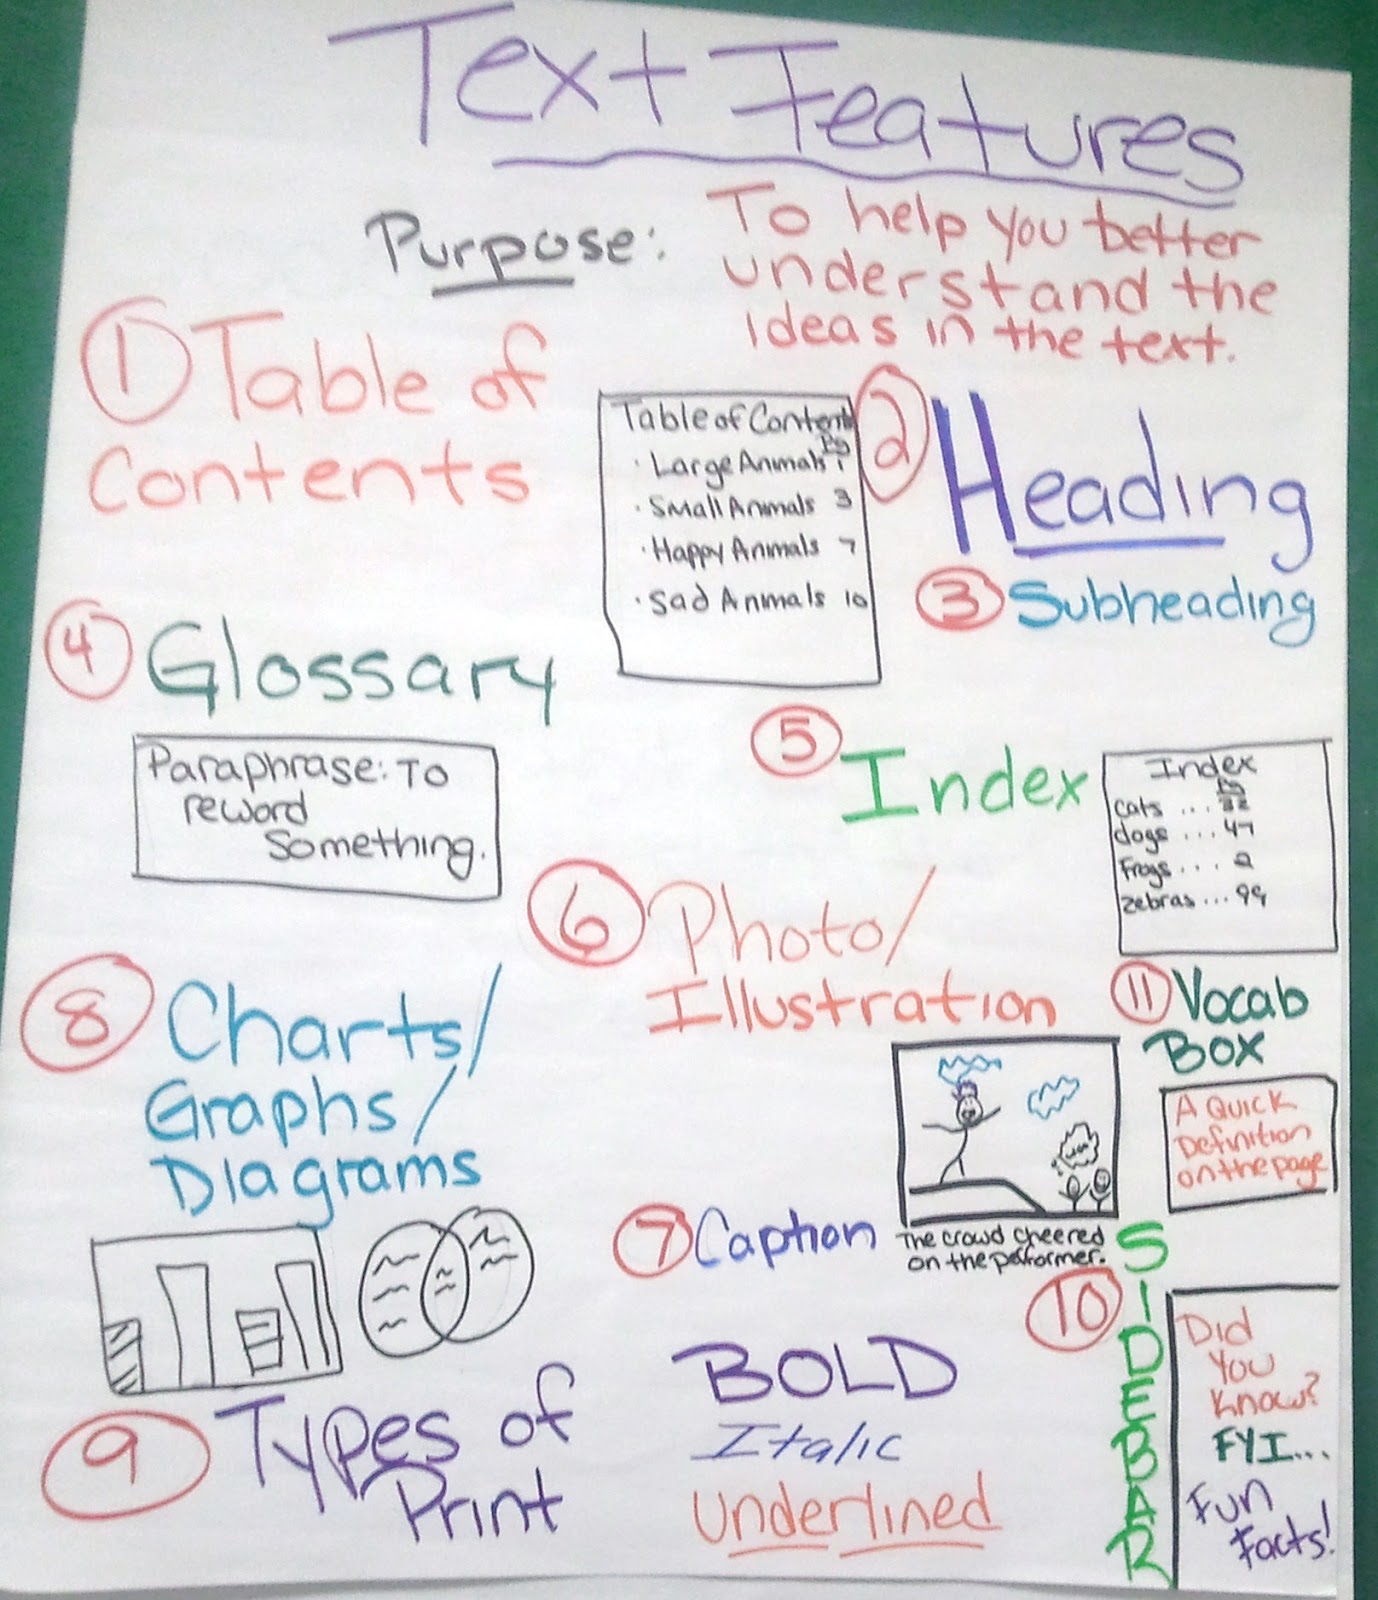 Text Features
Purpose: To help you better
understand the
ideas in the text.
① Table of
Contents
Table of Content
Pg
· Large Animals 1
· Small Animals 3
· Happy Animals 7
· Sad Animals 10
② Heading
③ Subheading
④ Glossary
Paraphrase: To
reword
something.
⑤ Index
Index
Pg
cats ... 32
dogs ... 47
Frogs .... 2
zebras ... 99
⑥ Photo/
Illustration
⑦ Caption
The crowd cheered
on the performer.
⑧ Charts/
Graphs/
Diagrams
⑨ Types of
Print
BOLD
Italic
Underlined
⑪ Vocab
Box
A Quick
Definition
on the page
⑩ SIDEBAR
Did
You
Know?
FYI...
Fun
Facts!